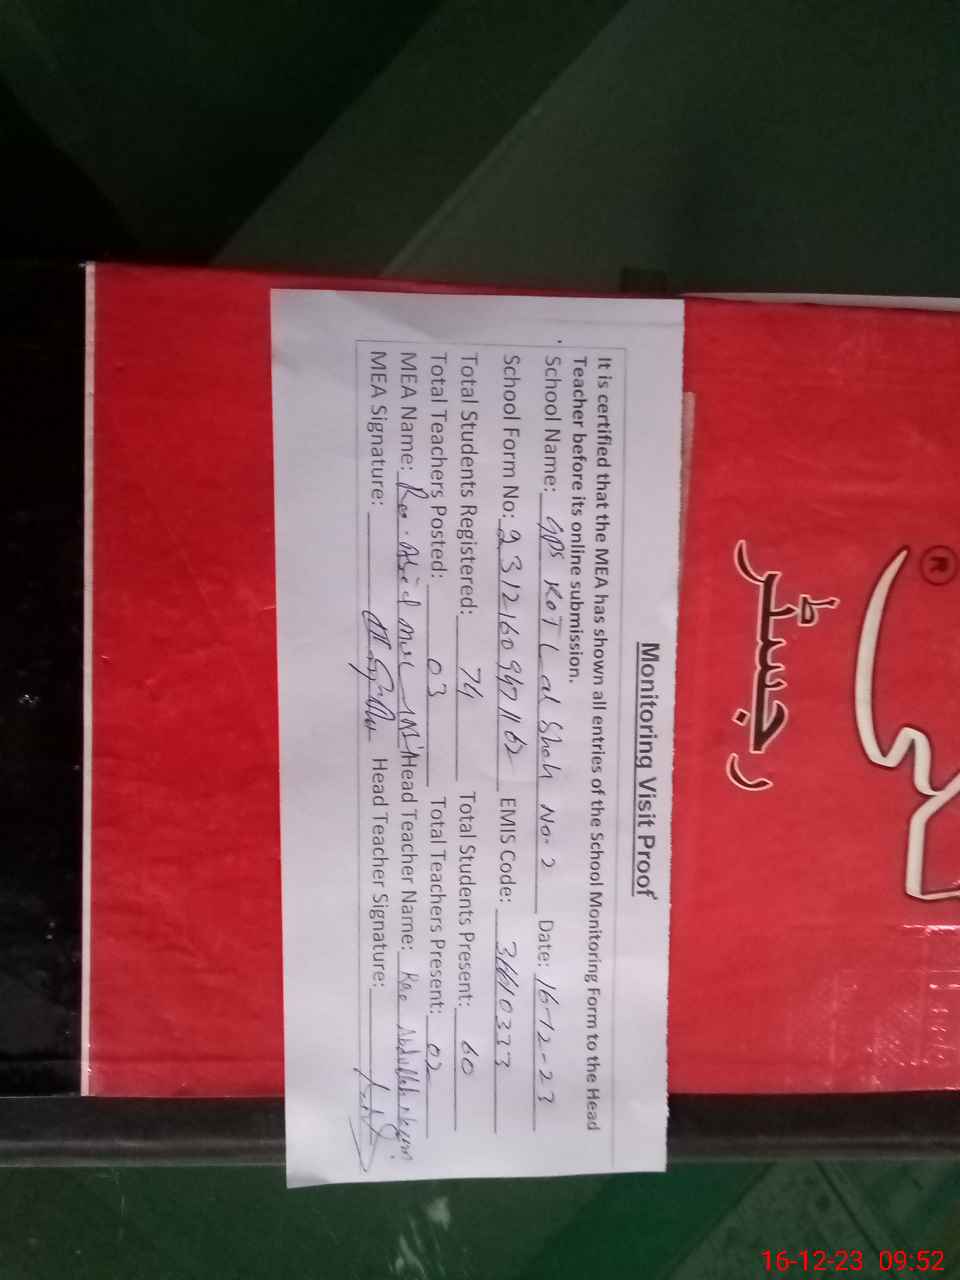 رجسٹر
®
Monitoring Visit Proof
It is certified that the MEA has shown all entries of the School Monitoring Form to the Head
Teacher before its online submission.
School Name: GPS KOT Lal Shah No. 2 Date: 16-12-23
School Form No: EMIS Code:
Total Students Registered: 74 Total Students Present: 60
Total Teachers Posted: 03 Total Teachers Present: 02
MEA Name: Head Teacher Name: Rao Abdullah
MEA Signature: Head Teacher Signature:
16-12-23 09:52